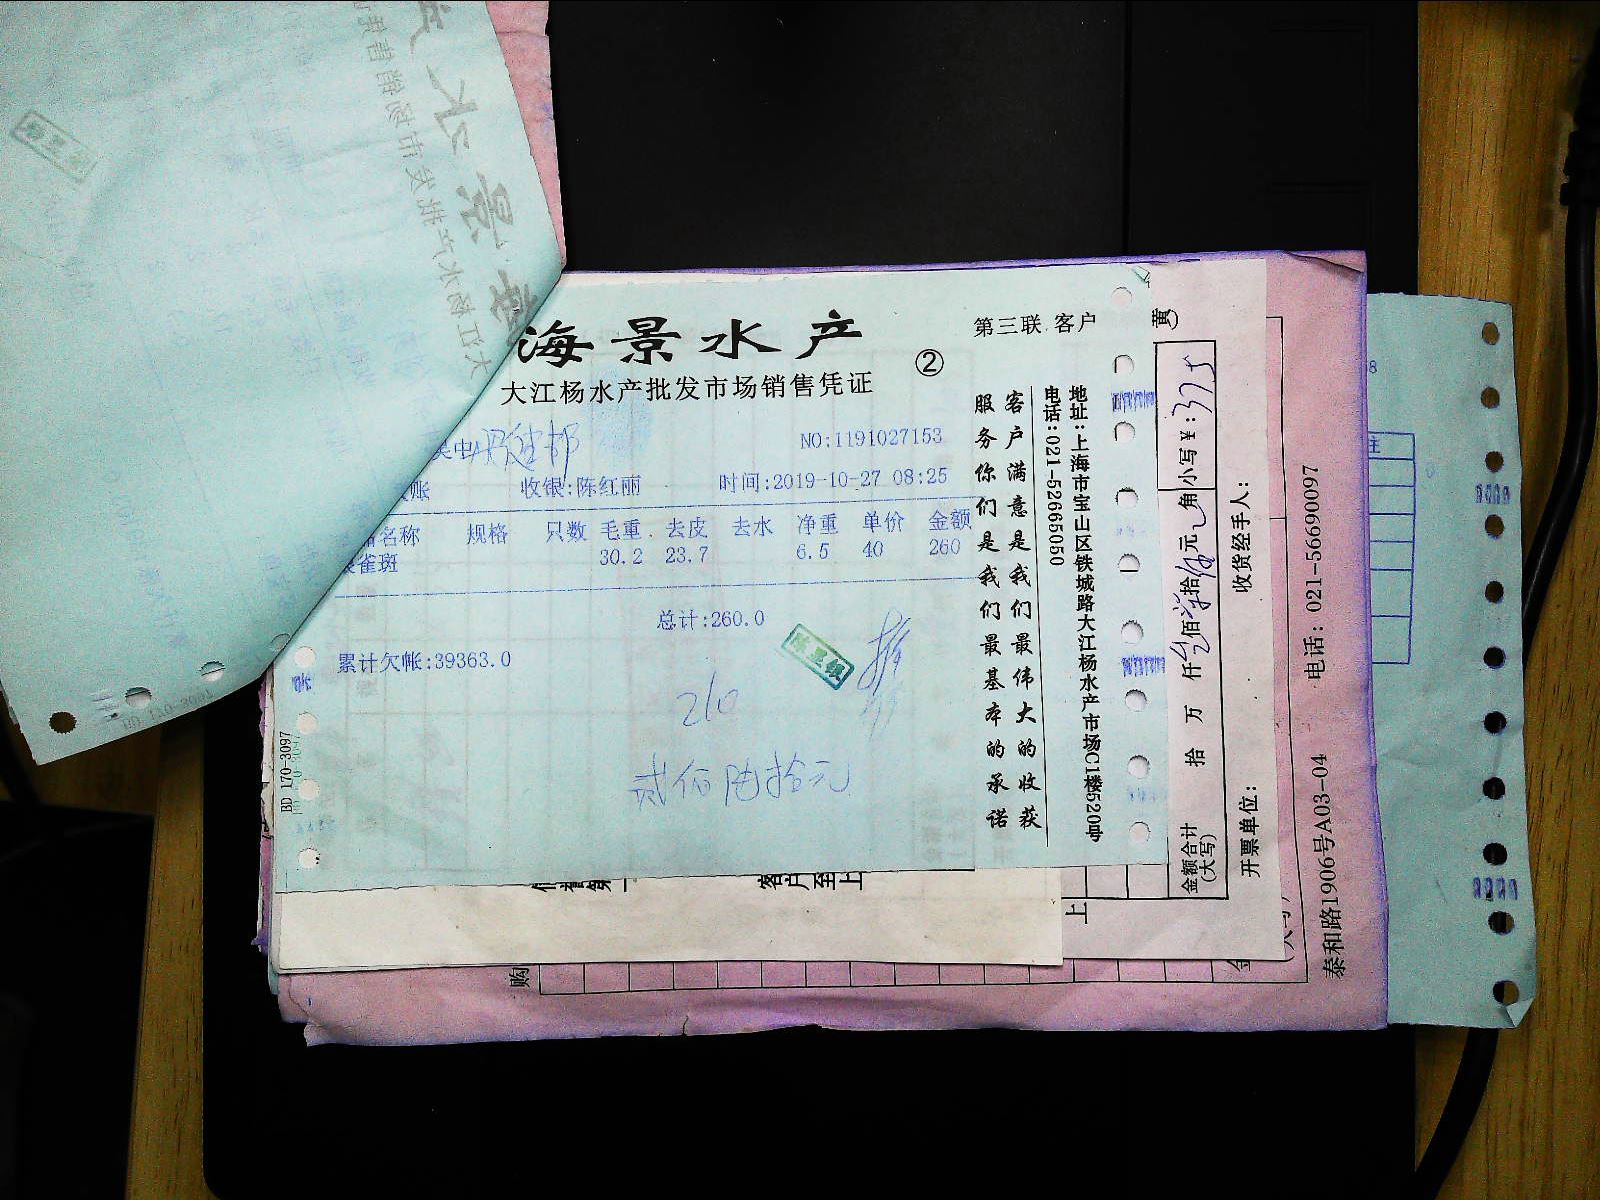 海景水产
大江杨水产批发市场销售凭证
②
第三联 客户
NO:1191027153
账 收银:陈红丽 时间:2019-10-27 08:25
名称 规格 只数 毛重 去皮 去水 净重 单价 金额
雀斑 30.2 23.7 6.5 40 260
总计:260.0
累计欠帐:39363.0
陈星银
260
贰佰陆拾元
客户满意是我们最伟大的收获
服务你们是我们最基本的承诺
地址:上海市宝山区铁城路大江杨水产市场C1楼520号
电话:021-52665050
BD 170-3097
黄
金额合计(大写) 拾 万 仟 佰 拾 元 角 小写¥:375
开票单位: 收货经手人:
客户至上
上
购
泰和路1906号A03-04 电话: 021-56690097
8
注
海景水
大江杨水产批发市场销售凭证